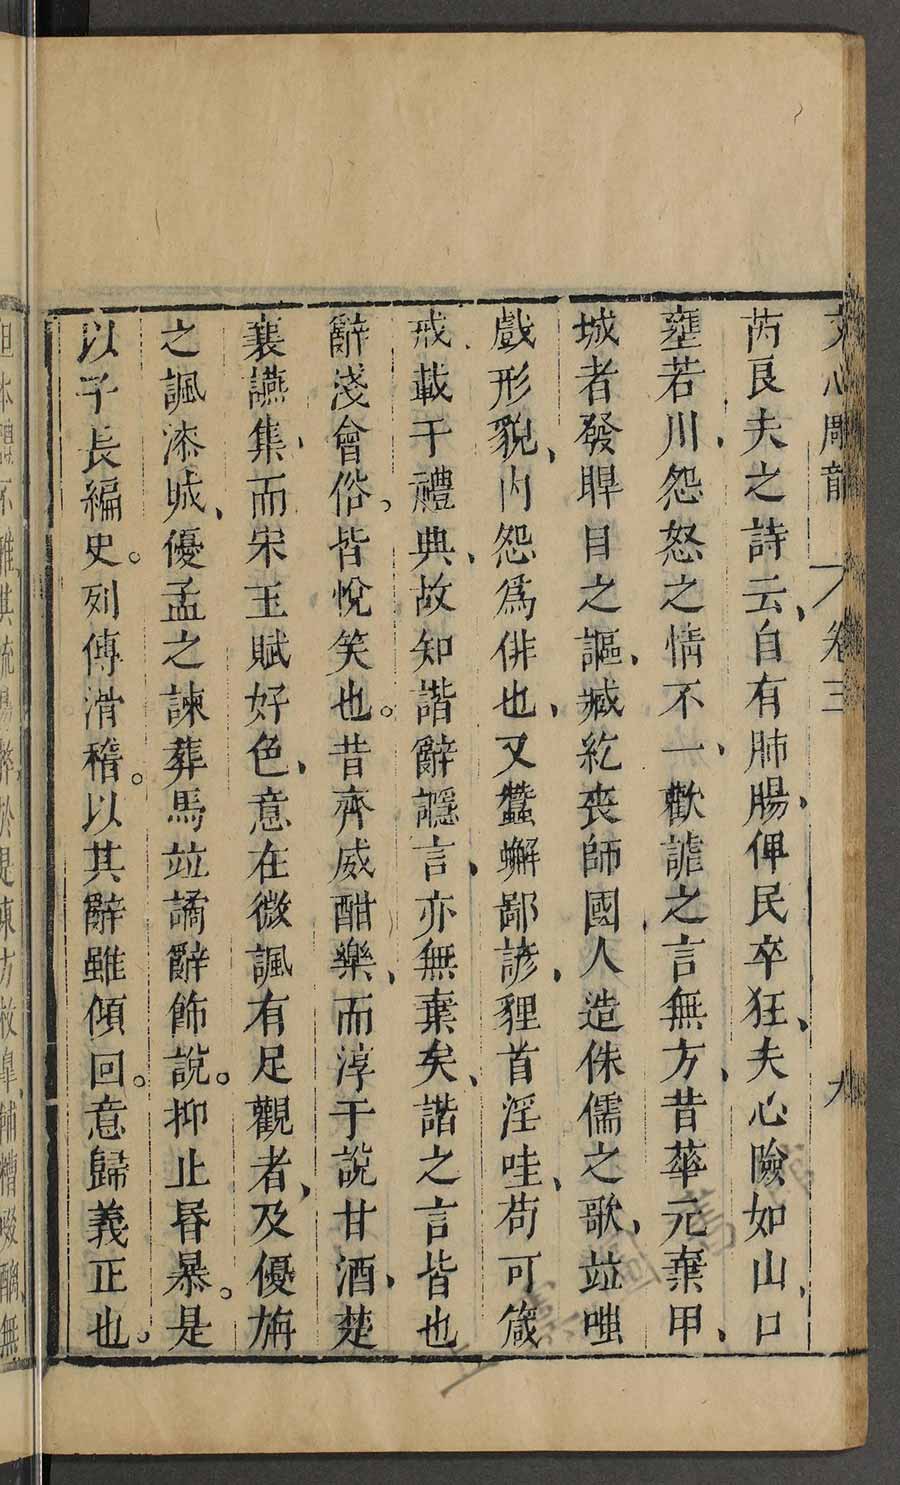 文心雕龍 卷三
芮良夫之詩云、自有肺腸、俾民卒狂、夫心險如山、口
壅若川、怨怒之情不一、歡謔之言無方、昔華元棄甲、
城者發睅目之謳、臧紇喪師國人造侏儒之歌、竝嗤
戲形貌、内怨爲俳也、又蠶蠏鄙諺、貍首淫哇、苟可箴
戒載于禮典、故知諧辭讔言、亦無棄矣、諧之言皆也
辭淺會俗、皆悅笑也。昔齊威酣樂、而淳于說甘酒、楚
襄讌集、而宋玉賦好色、意在微諷有足觀者、及優旃
之諷漆城、優孟之諫葬馬竝譎辭飾說。抑止昬暴。是
以子長編史。列傳滑稽。以其辭雖傾回。意歸義正也。